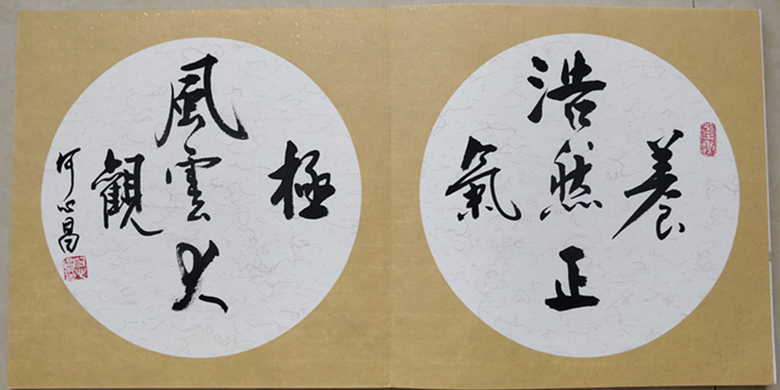 養
浩然正
氣
極
風雲大
觀
何心昌